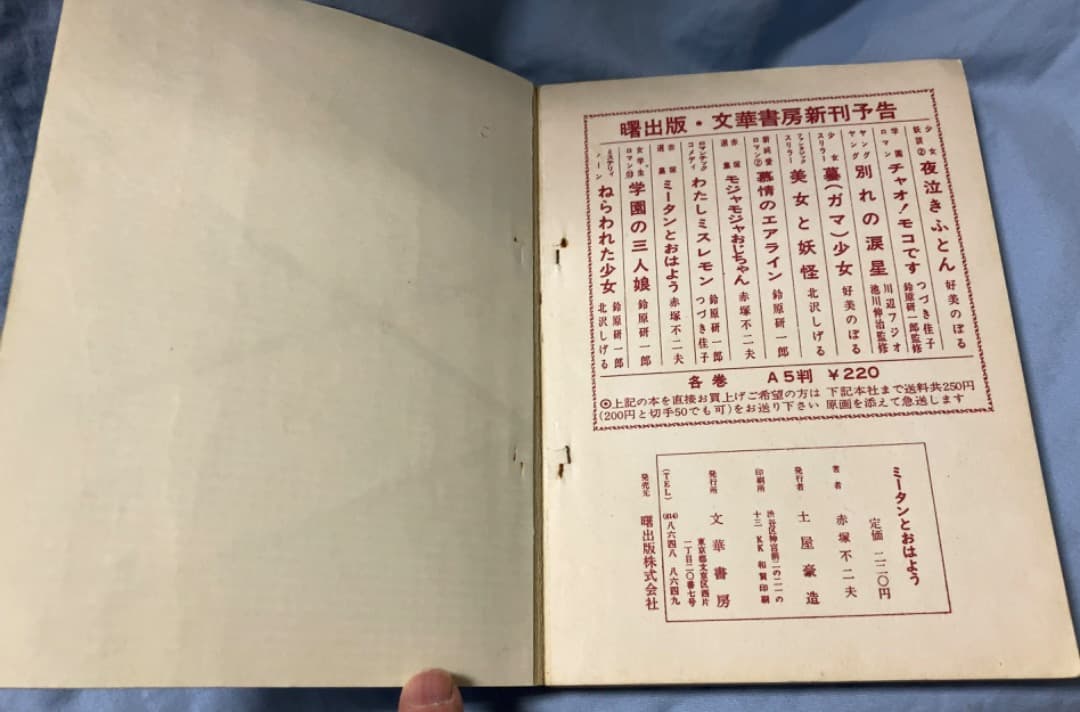 曙出版・文華書房新刊予告
少女妖談② 夜泣きふとん 好美のぼる
学園ロマン チャオ!モコです つづき佳子 鈴原研一郎監修
ヤングヤング 別れの涙星 川辺フジオ 池川伸治監修
少女スリラー 蟇(ガマ)少女 好美のぼる
ファンタジックスリラー 美女と妖怪 北沢しげる
新純愛ロマン② 慕情のエアライン 鈴原研一郎
赤塚選集 モジャモジャおじちゃん 赤塚不二夫
ロマンチックコメディ わたしミスレモン つづき佳子 鈴原研一郎
赤塚選集 ミータンとおはよう 赤塚不二夫
女学生ロマン 学園の三人娘 鈴原研一郎
ミステリィ ねらわれた少女 鈴原研一郎 北沢しげる
各巻 A5判 ¥220
◎上記の本を直接お買上げご希望の方は 下記本社まで送料共250円
(200円と切手50でも可)をお送り下さい 原画を添えて急送します
ミータンとおはよう
定価 二二〇円
著者 赤塚不二夫
発行者 土屋豪造
印刷所 渋谷区神宮前二の二一の
十三 KK 和賢印刷
発行所 文華書房
東京都文京区西片
一丁目二〇番七号
(TEL) (814) 八六四八 八六四九
発売元 曙出版株式会社